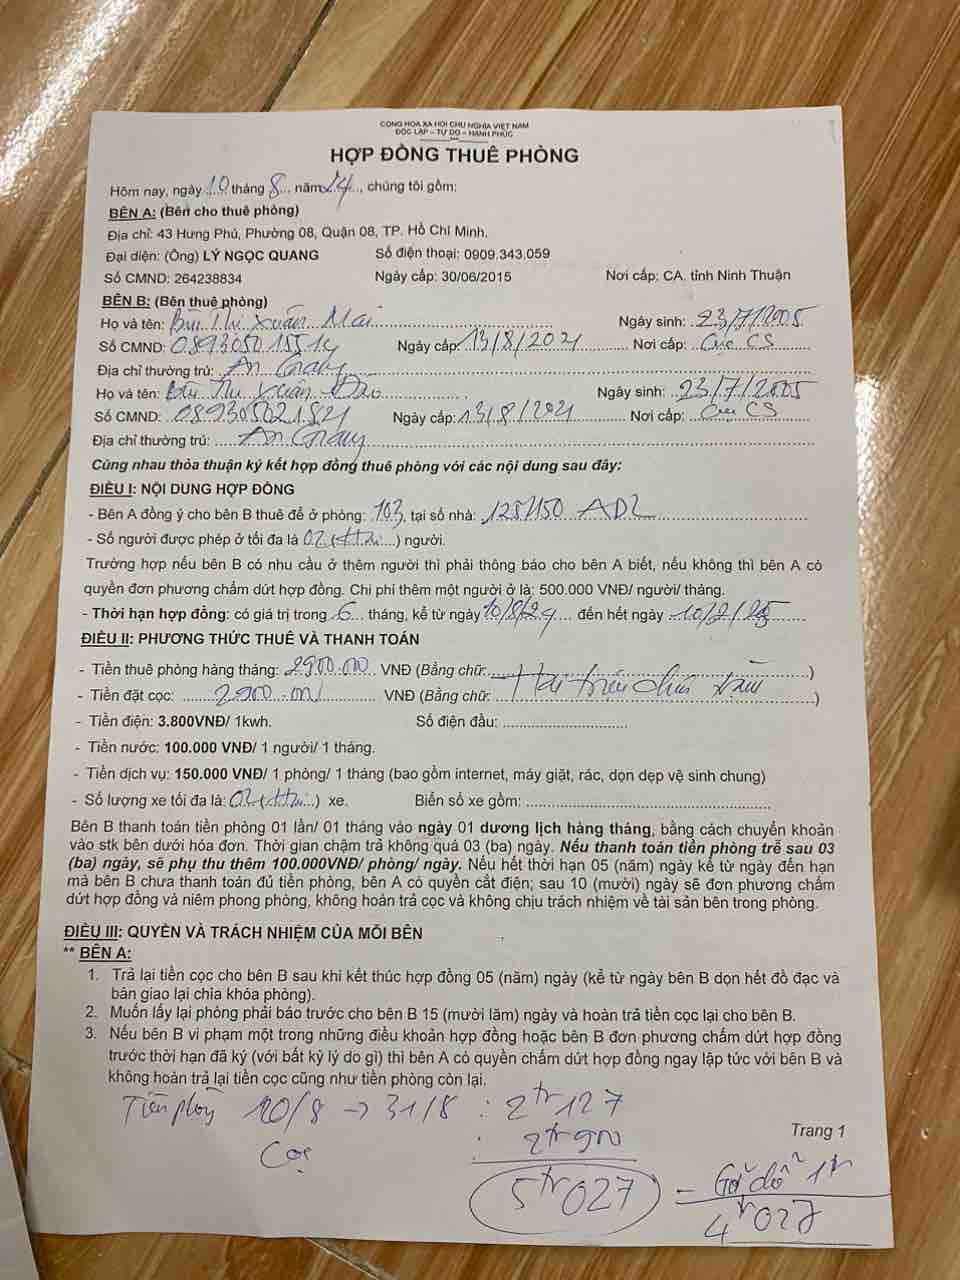 CỘNG HÒA XÃ HỘI CHỦ NGHĨA VIỆT NAM
ĐỘC LẬP – TỰ DO – HẠNH PHÚC
HỢP ĐỒNG THUÊ PHÒNG
Hôm nay, ngày 10 tháng 8 năm 24, chúng tôi gồm:
BÊN A: (Bên cho thuê phòng)
Địa chỉ: 43 Hưng Phú, Phường 08, Quận 08, TP. Hồ Chí Minh.
Đại diện: (Ông) LÝ NGỌC QUANG Số điện thoại: 0909.343.059
Số CMND: 264238834 Ngày cấp: 30/06/2015 Nơi cấp: CA. tỉnh Ninh Thuận
BÊN B: (Bên thuê phòng)
Họ và tên: Bùi Thị Xuân Mai Ngày sinh: 23/7/2005
Số CMND: Ngày cấp: 13/8/2021 Nơi cấp: Cục CS
Địa chỉ thường trú: An Giang
Họ và tên: Bùi Thị Xuân Đào Ngày sinh: 23/7/2005
Số CMND: 089305021821 Ngày cấp: 13/8/2021 Nơi cấp: Cục CS
Địa chỉ thường trú: An Giang
Cùng nhau thỏa thuận ký kết hợp đồng thuê phòng với các nội dung sau đây:
ĐIỀU I: NỘI DUNG HỢP ĐỒNG
- Bên A đồng ý cho bên B thuê để ở phòng: 103, tại số nhà: ADV
- Số người được phép ở tối đa là 02 (Hai) người.
Trường hợp nếu bên B có nhu cầu ở thêm người thì phải thông báo cho bên A biết, nếu không thì bên A có
quyền đơn phương chấm dứt hợp đồng. Chi phí thêm một người ở là: 500.000 VNĐ/ người/ tháng.
- Thời hạn hợp đồng: có giá trị trong 6 tháng, kể từ ngày 10/8/24 đến hết ngày 10/2/25
ĐIỀU II: PHƯƠNG THỨC THUÊ VÀ THANH TOÁN
- Tiền thuê phòng hàng tháng: 2900.000 VNĐ (Bằng chữ: )
- Tiền đặt cọc: 2900.000 VNĐ (Bằng chữ: Hai triệu chín trăm )
- Tiền điện: 3.800VNĐ/ 1kwh. Số điện đầu:
- Tiền nước: 100.000 VNĐ/ 1 người/ 1 tháng.
- Tiền dịch vụ: 150.000 VNĐ/ 1 phòng/ 1 tháng (bao gồm internet, máy giặt, rác, dọn dẹp vệ sinh chung)
- Số lượng xe tối đa là: 02 (Hai) xe. Biển số xe gồm:
Bên B thanh toán tiền phòng 01 lần/ 01 tháng vào ngày 01 dương lịch hàng tháng, bằng cách chuyển khoản
vào stk bên dưới hóa đơn. Thời gian chậm trả không quá 03 (ba) ngày. Nếu thanh toán tiền phòng trễ sau 03
(ba) ngày, sẽ phụ thu thêm 100.000VNĐ/ phòng/ ngày. Nếu hết thời hạn 05 (năm) ngày kể từ ngày đến hạn
mà bên B chưa thanh toán đủ tiền phòng, bên A có quyền cắt điện; sau 10 (mười) ngày sẽ đơn phương chấm
dứt hợp đồng và niêm phong phòng, không hoàn trả cọc và không chịu trách nhiệm về tài sản bên trong phòng.
ĐIỀU III: QUYỀN VÀ TRÁCH NHIỆM CỦA MỖI BÊN
** BÊN A:
1. Trả lại tiền cọc cho bên B sau khi kết thúc hợp đồng 05 (năm) ngày (kể từ ngày bên B dọn hết đồ đạc và
bàn giao lại chìa khóa phòng).
2. Muốn lấy lại phòng phải báo trước cho bên B 15 (mười lăm) ngày và hoàn trả tiền cọc lại cho bên B.
3. Nếu bên B vi phạm một trong những điều khoản hợp đồng hoặc bên B đơn phương chấm dứt hợp đồng
trước thời hạn đã ký (với bất kỳ lý do gì) thì bên A có quyền chấm dứt hợp đồng ngay lập tức với bên B và
không hoàn trả lại tiền cọc cũng như tiền phòng còn lại.
Tiền phòng 10/8 → 31/8 : 2tr127
Trang 1
Cọc : 2tr900
5tr027 - Giữ chỗ 1tr
4tr027